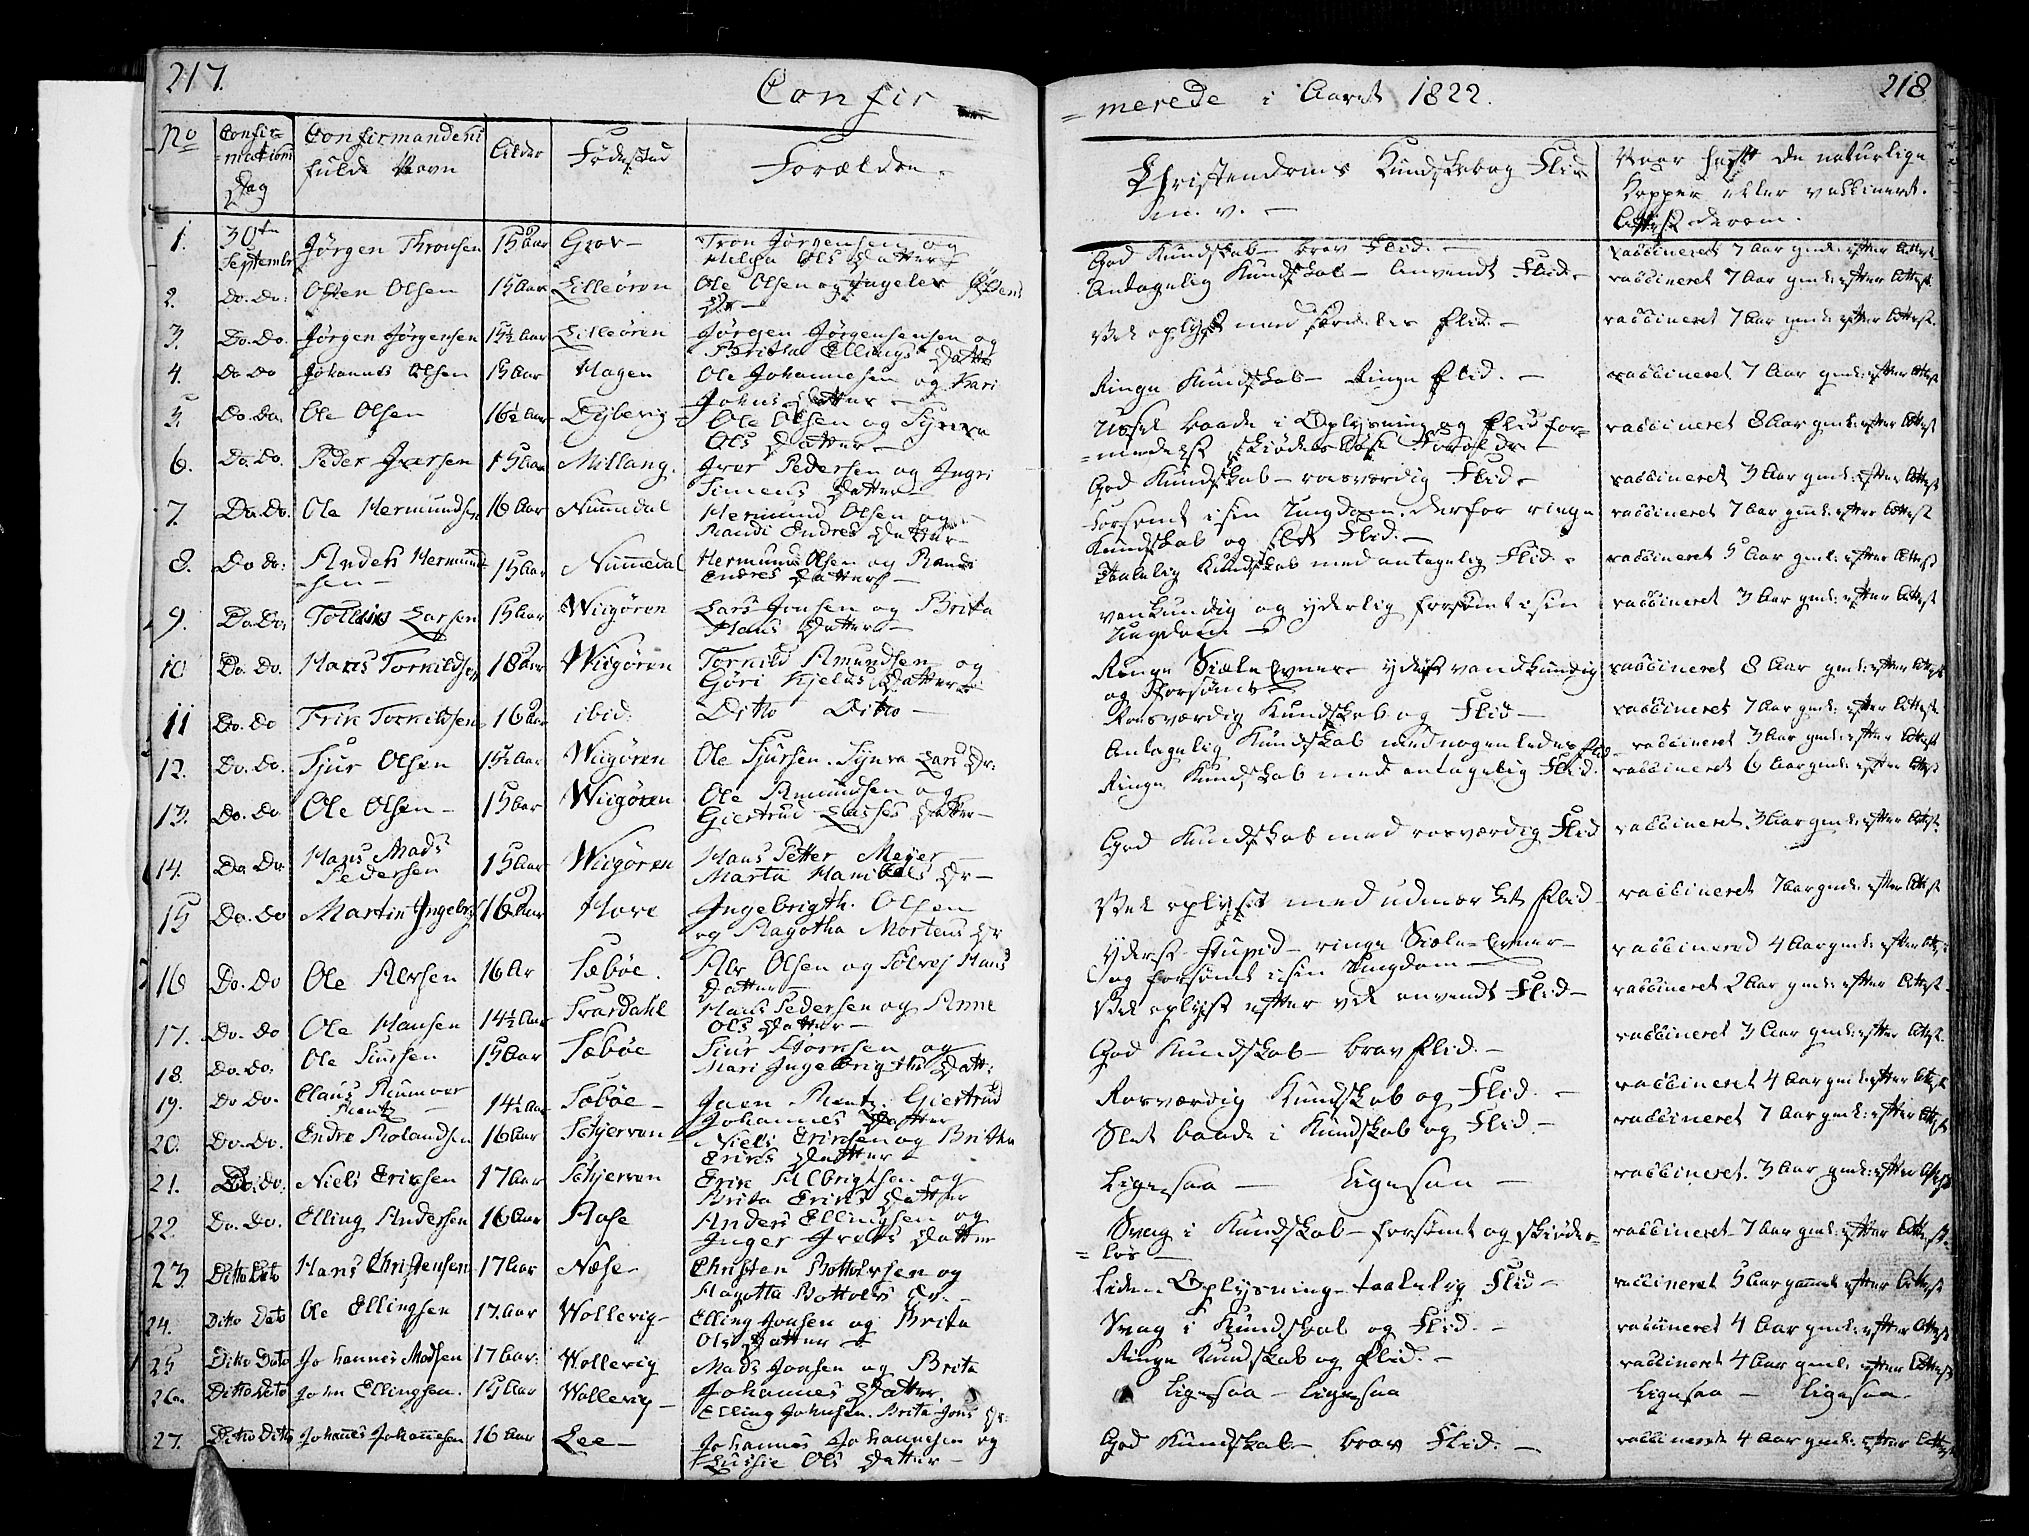 217.
218
Confir-
=merede i Aaret 1822.
No
Confir=
=mations
Dag
Confirmandens
fulde Navn
Alder
Födestæd
Forældre.
Christendoms Kundskab og Flid
m. v. -
Naar hafft de naturlige
Kopper eller vaccineret.
Attest derom.
1. 30te September Jörgen Thronsen 15 Aar Gröv-
Tron Jörgensen og
Ols Datter
God Kundskab - brav Flid. -
vaccineret 7 Aar gml: efter Attest
2. Do. Do: Olsen 15 Aar Lilleören
Ole Olsen og
Dr -
Antagelig Kundskab - Anvendt Flid -
vaccineret 7 Aar gml: efter Attest
3. Do. Do. Jörgen Jörgensen 15½ Aar Lilleören
Jörgen Jörgensensen og
Britha Ellings Datter
Vel oplyst med særdeles Flid -
vaccineret 7 Aar gml: efter Attest.
4. Do Do Johannes Olsen 15 Aar Hagen
Ole Johannesen og Kari
Johns Datter -
Ringe Kundskab - Ringe Flid. -
vaccineret 7 Aar gml: efter Attest
5. Do. Do. Ole Olsen 16½ Aar Dybevig-
Ole Olsen og Synneva
Ols Datter -
Ussel baade i Oplysning og Flid for=
=medelst skiödeslöse Forældre -
vaccineret 8 Aar gml: efter Attest
6. Do. Do. Peder Iversen 15 Aar Millang.
Iver Pedersen og Ingri
Simens Datter -
God Kundskab - rosværdig Flid -
vaccineret 3 Aar gml: efter Attest
7. Do. Do. Ole Hermundsen 16 Aar Nummedal
Hermund Olsen og
Randi Endres Datter -
Forsömt i sin Ungdom. derfor ringe
Kundskab og slet Flid. -
vaccineret 7 Aar gml: efter Attest
8. Do Do: Anders Hermund
sen - 15 Aar Nummedal
Hermund Olsen og Randi
Endres Datter -
Taalelig Kundskab med antagelig Flid. -
vaccineret 5 Aar gml: efter Attest
9. Do. Do. Tollius Larsen 15 Aar Wiigören
Lars Jonsen og Brita
Hans Datter -
vankundig og yderlig forsömt i sin
Ungdom -
vaccineret 3 Aar gml: efter Attest
10 Do. Do. Hans Torkildsen 18 Aar Wiigören
Torkild Amundsen og
Göri Kjels Datter
Ringe Siæle Evner - yderst vandkundig
og forsömt -
vaccineret 8 Aar gml: efter Attest
11 Do. Do Erik Torkildsen 16 Aar ibid:
Ditto Ditto -
Rosværdig Kundskab og Flid -
vaccineret 7 Aar gml: efter Attest
12. Do. Do. Sjur Olsen 15½ Aar Wiigören
Ole Sjursen. Synva Lars Dr:
Antagelig Kundskab med nogenledes Flid
vaccineret 3 Aar gml: efter Attest
13. Do. Do. Ole Olsen - 15 Aar Wiigören
Ole Amundsen og
Giertrud Lasses Datter -
Ringe Kundskab med antagelig Flid.
vaccineret 6 Aar gml: efter Attest
14. Do. Do Hans Mads
Pedersen 15 Aar Wiigören
Hans Petter Meyer -
Marta Hanibals Dr -
God Kundskab med rosværdig Flid
vaccineret. 3 Aar gml: efter Attest.
15 Do. Do Martin Ingebrigt 16 Aar Hove
Ingebrigth. Olsen
og Ragotha Mortens Dr
Vel oplyst med udmærket Flid
vaccineret 7 Aar gml: efter Attest
16 Do. Do Ole Alvsen 16 Ar Sæböe.
Alv Olsen og Sölvej Hans
Datter -
Yderst stupid - ringe Siæle-Evner -
og forsömt i sin Ungdom -
vaccinered 4 Aar gml: efter Attest
17. Do. Do Ole Hansen 14½ Aar Svardahl
Hans Pedersen og Anne
Ols Datter -
Vel oplyst efter vel anvendt Flid -
vaccineret 2 Aar gml: efter Attest -
18. Do. Do. Ole Siursen 15 Aar Sæböe
Siur Storksen og
Mari Ingebrigths Datt:
God Kundskab - brav Flid. -
vaccineret 3 Aar gml: efter Attest.
19. Do Do. Claus Rumoer
Rentz - 14½ Aar Sæböe -
Joen Rentz. Giertrud
Johannes Datter
Rosværdig Kundskab og Flid. -
vaccineret 4 Aar gml: efter Attest
20. Do. Do. Endre Rolandsen 16 Aar Schjerven -
Niels Eriksen og Britha
Eriks Datter -
Slet baade i Kundskab og Flid. -
vaccineret 7 Aar gml: efter Attest
21. Do. Do: Niels Eriksen 17 Aar Schjerven
Erik Albrigtsen og
Brita Eriks Datter
Ligesaa - Ligesaa -
vaccineret. 3 Aar gml: efter Attest
22. Do. Do. Elling Andersen 16 Aar Nase
Anders Ellingsen og
Inger Datter
Svag i Kundskab - forsömt og skiödes=
=lös -
vaccineret 7 Aar gml: efter Attest.
23 Ditto Dito Hans Christensen 17 Aar Næse -
Christen Bottolvsen og
Magotta Bottolvs Dr. -
Liden Oplysning - taalelig Flid -
vaccineret 5 Aar gammel efter Attest
24. Ditto Dato Ole Ellingsen 17 Aar Wollevig -
Elling Jonsen og Brita
Ols Datter -
Svag i Kundskab og Flid. -
vaccineret 4 Aar gml: efter Attest
25 Ditto Dato Johannes Madsen 17 Aar: Wollevig
Mads Jonsen og Brita
Johannes Datter
Ringe Kundskab og Flid. -
vaccineret 4 Aar gml: efter Attest
26. Ditto Dato John Ellingsen. 15 Aar Wollevig -
Elling Johnsen. Brita Jons Dr:
Ligesaa - Ligesaa
Ligesaa - Ligesaa -
27. Ditto Ditto Johannes Johannesen 16 Aar Lee -
Johannes Johannesen og
Lussie Ols Datter -
God Kundskab - brav Flid. -
vaccineret 4 Aar gml: efter Attest